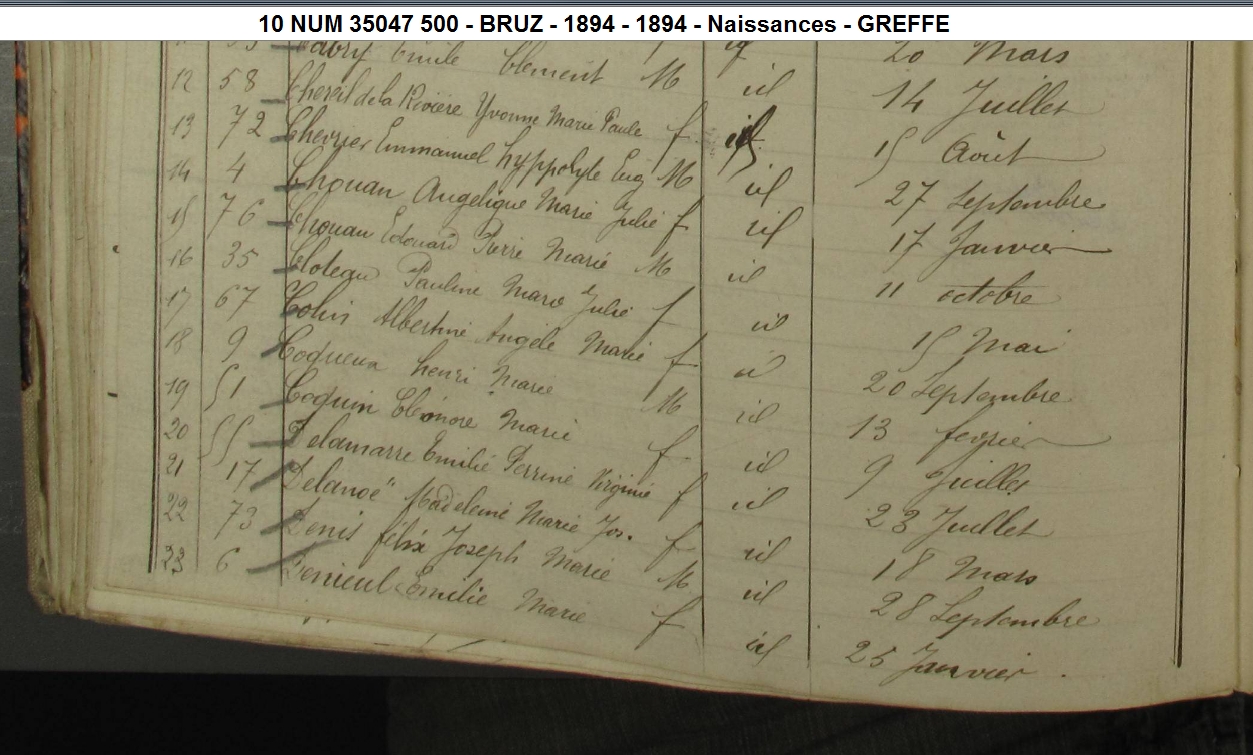 10 NUM 35047 500 - BRUZ - 1894 - 1894 - Naissances - GREFFE
20 Mars
Emile Clement M id 14 Juillet
12 58 Chereil de la Rivière Yvonne Marie Paule f id 15 Août
13 72 Chevrier Emmanuel hyppolyte Eug M id 27 Septembre
14 4 Chouan Angelique Marie Julie f id 17 Janvier
15 76 Chouan Edouard Pierre Marie M id 11 octobre
16 35 Cloteau Pauline Marie Julie f id 15 Mai
17 67 Colin Albertine Angèle Marie f id 20 Septembre
18 9 Coqueux henri Marie M id 13 fevrier
19 51 Coquin Eléonore Marie f id 9 Juillet
20 55 Delamarre Emilie Perrine Virginie f id 23 Juillet
21 17 Delanoë Madeleine Marie Jos. f id 18 Mars
22 73 Denis félix Joseph Marie M id 28 Septembre
23 6 Denieul Emilie Marie f id 25 Janvier